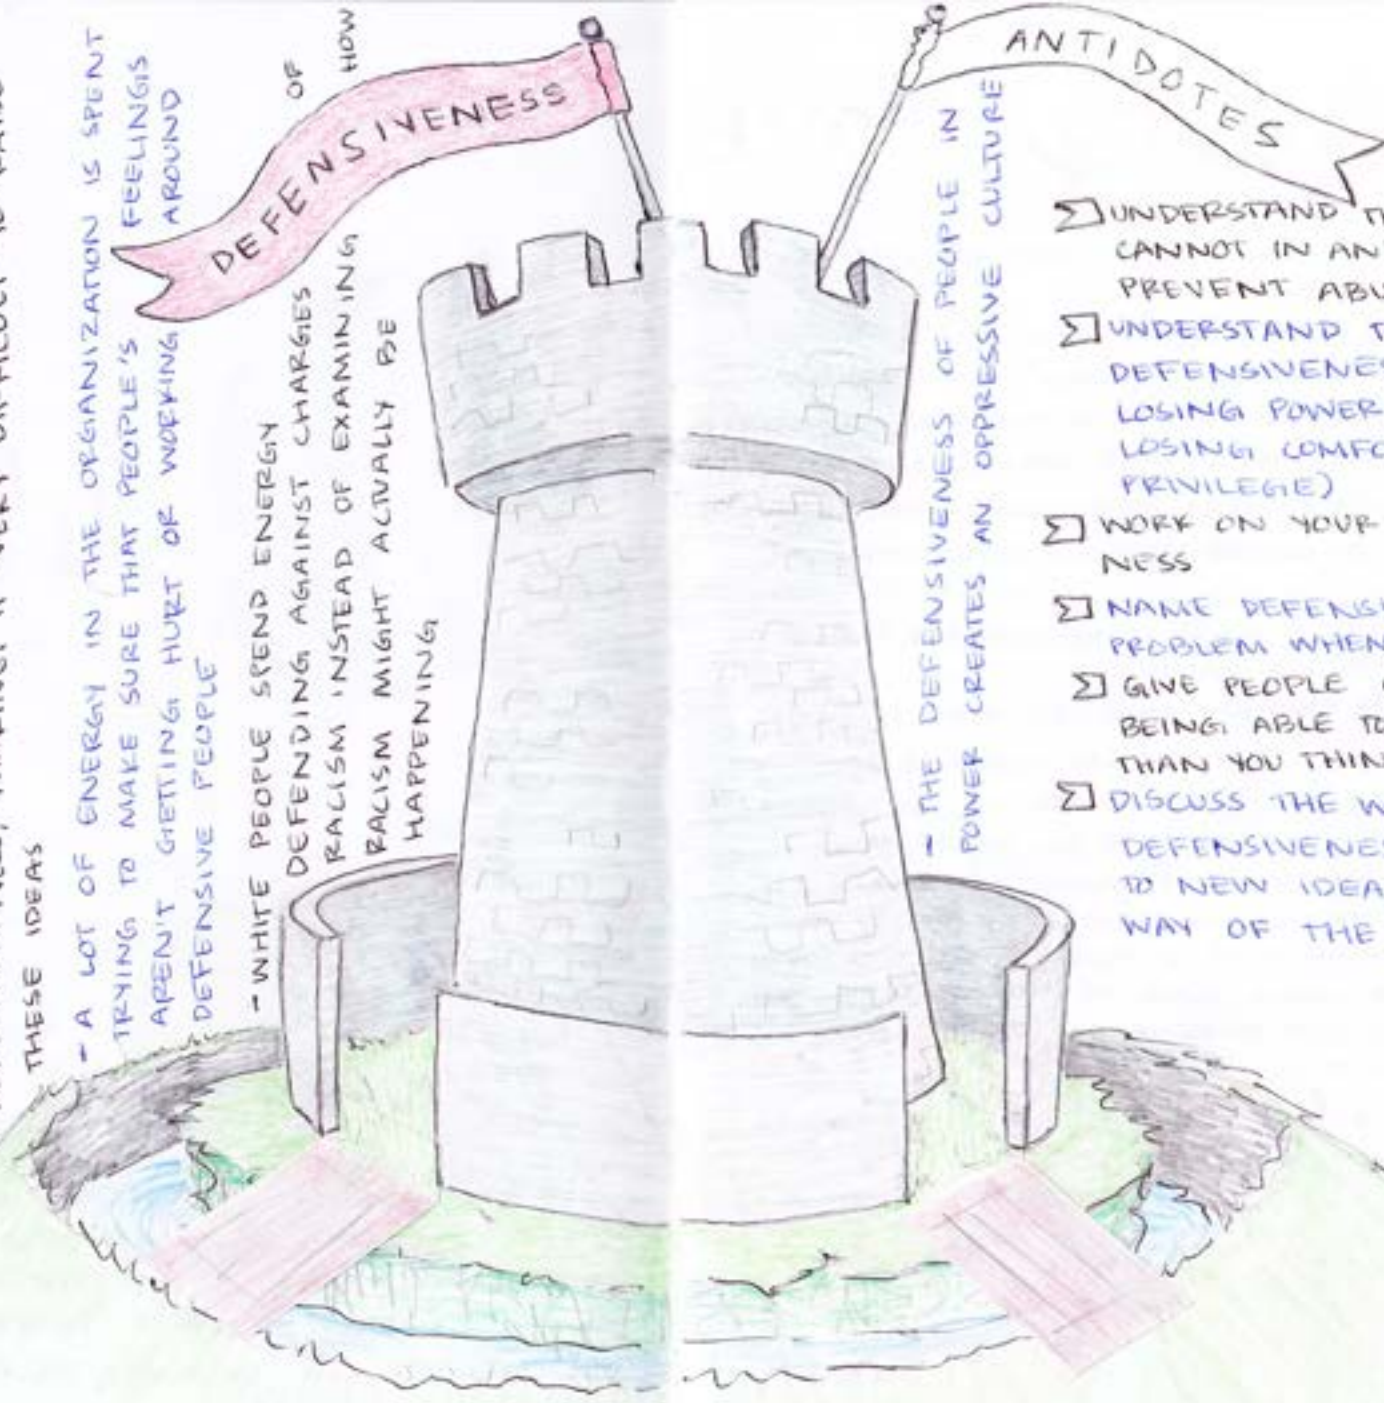 THESE IDEAS
- A LOT OF ENERGY IN THE ORGANIZATION IS SPENT
TRYING TO MAKE SURE THAT PEOPLE'S FEELINGS
AREN'T GETTING HURT OR WORKING AROUND
DEFENSIVE PEOPLE
- WHITE PEOPLE SPEND ENERGY
DEFENDING AGAINST CHARGES OF
RACISM INSTEAD OF EXAMINING HOW
RACISM MIGHT ACTUALLY BE
HAPPENING
DEFENSIVENESS
- THE DEFENSIVENESS OF PEOPLE IN
POWER CREATES AN OPPRESSIVE CULTURE
ANTIDOTES
UNDERSTAND TH
CANNOT IN AN
PREVENT ABU
UNDERSTAND T
DEFENSIVENES
LOSING POWER
LOSING COMFO
PRIVILEGE)
WORK ON YOUR
NESS
NAME DEFENSI
PROBLEM WHEN
GIVE PEOPLE
BEING ABLE TO
THAN YOU THIN
DISCUSS THE W
DEFENSIVENES
TO NEW IDEA
WAY OF THE